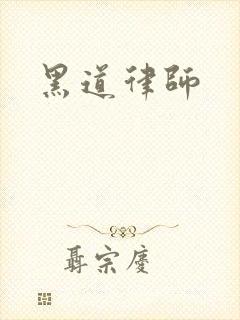 黑道律師
聶宗慶